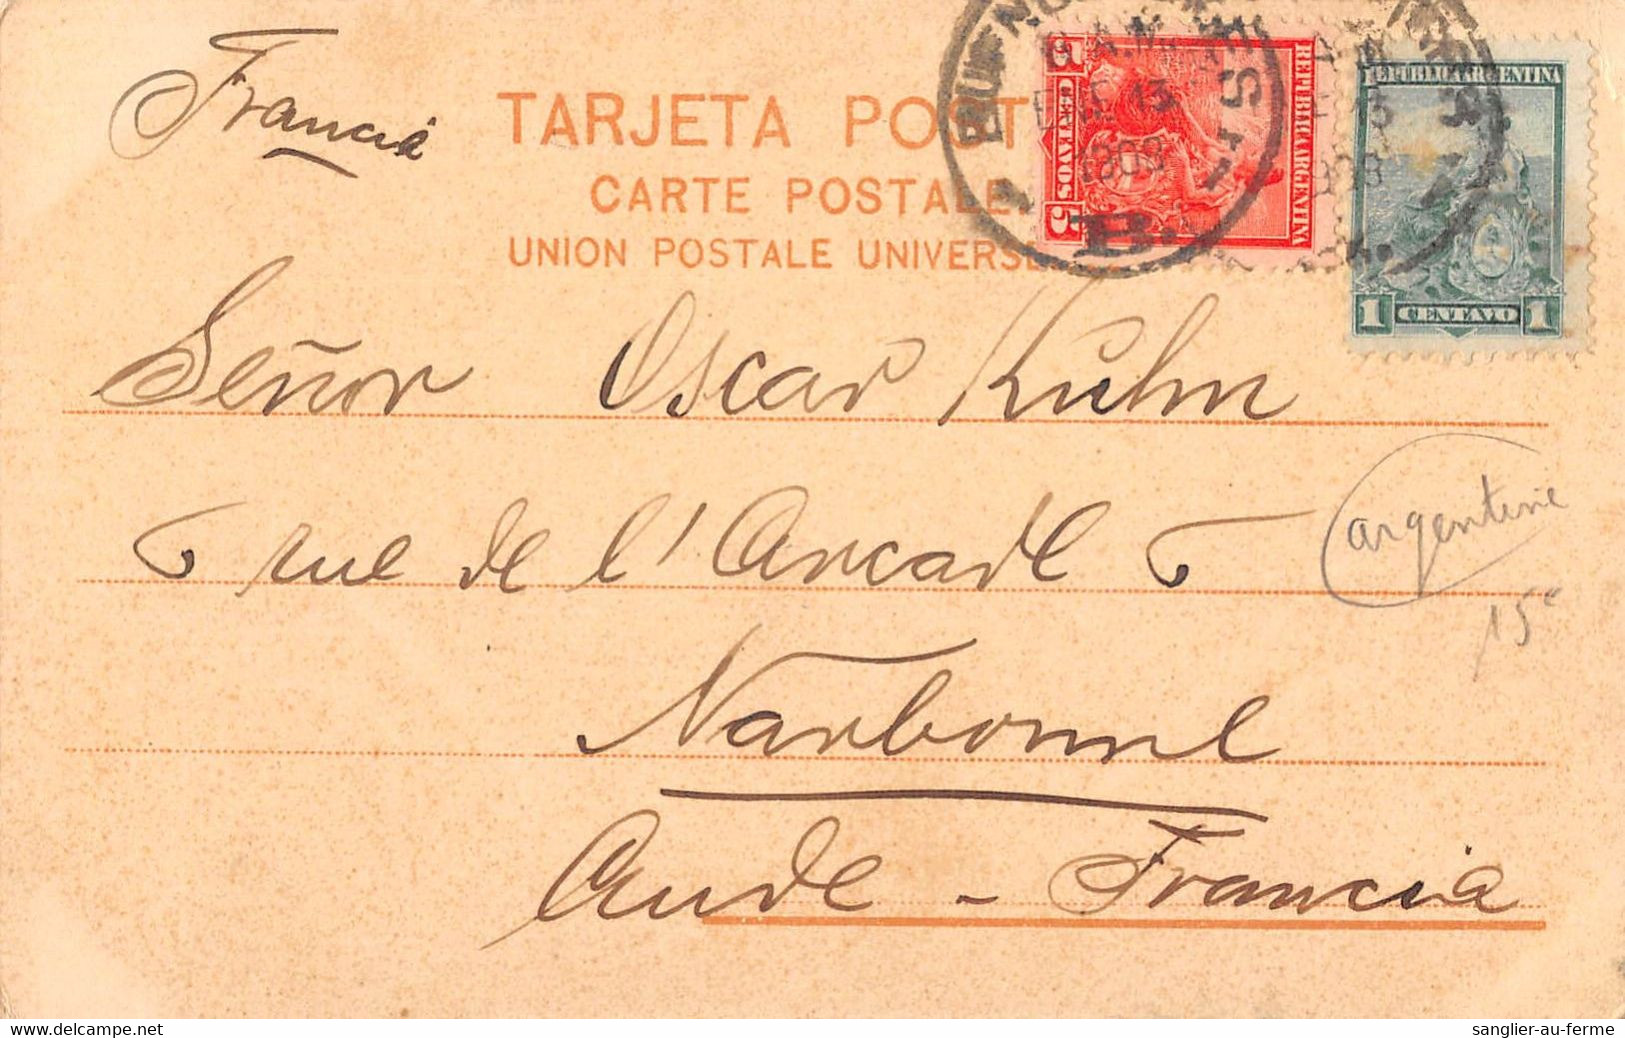 Francia
TARJETA POST
CARTE POSTALE
UNION POSTALE UNIVERSE
BUENOS AIRES
ENE 13
1903
B.
REPUBLICA ARGENTINA
5 CENTAVOS 5
REPUBLICA ARGENTINA
1 CENTAVO 1
Señor Oscar Kuhn
6 rue de l'Arcade 6
Narbonne
Aude - Francia
argentine
15€
delcampe.net
sanglier-au-ferme